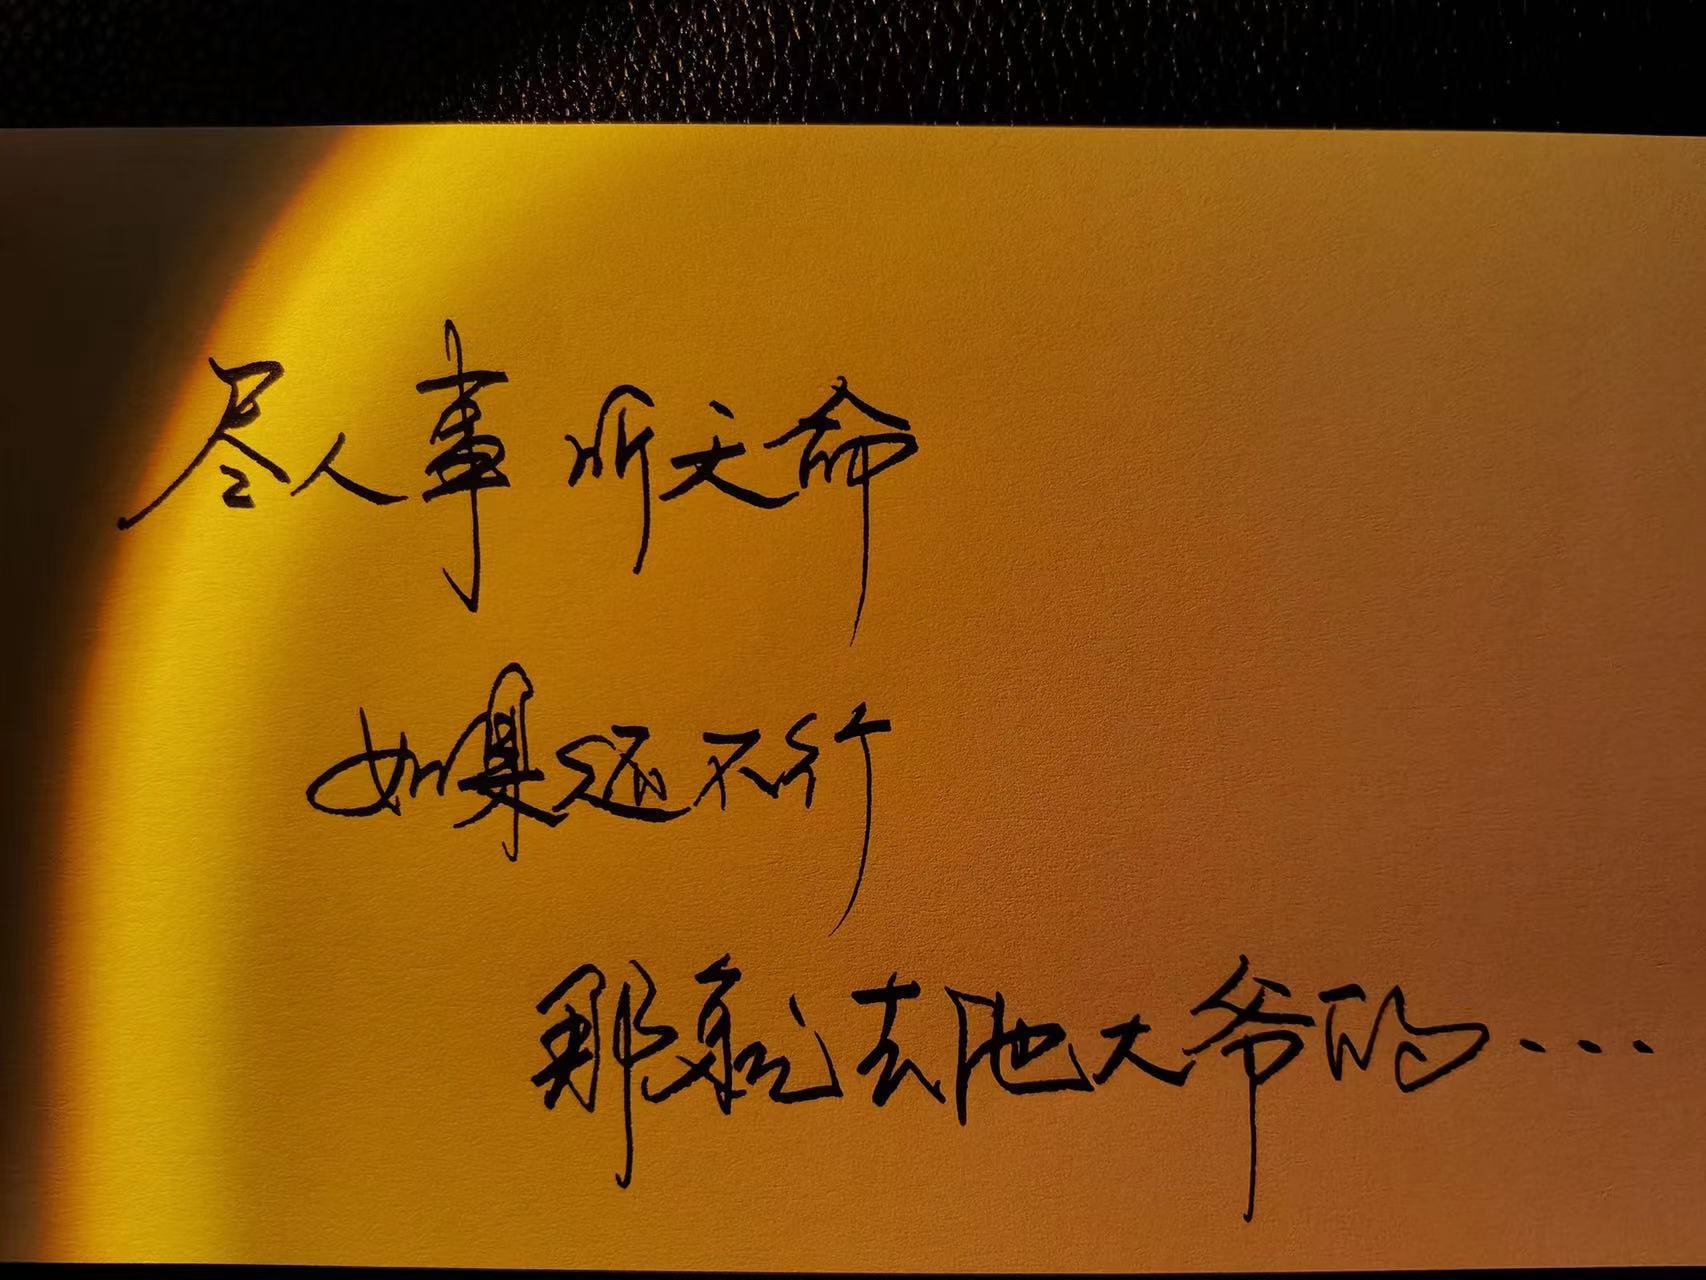 尽人事 听天命
如果还不行
那就去他大爷的...